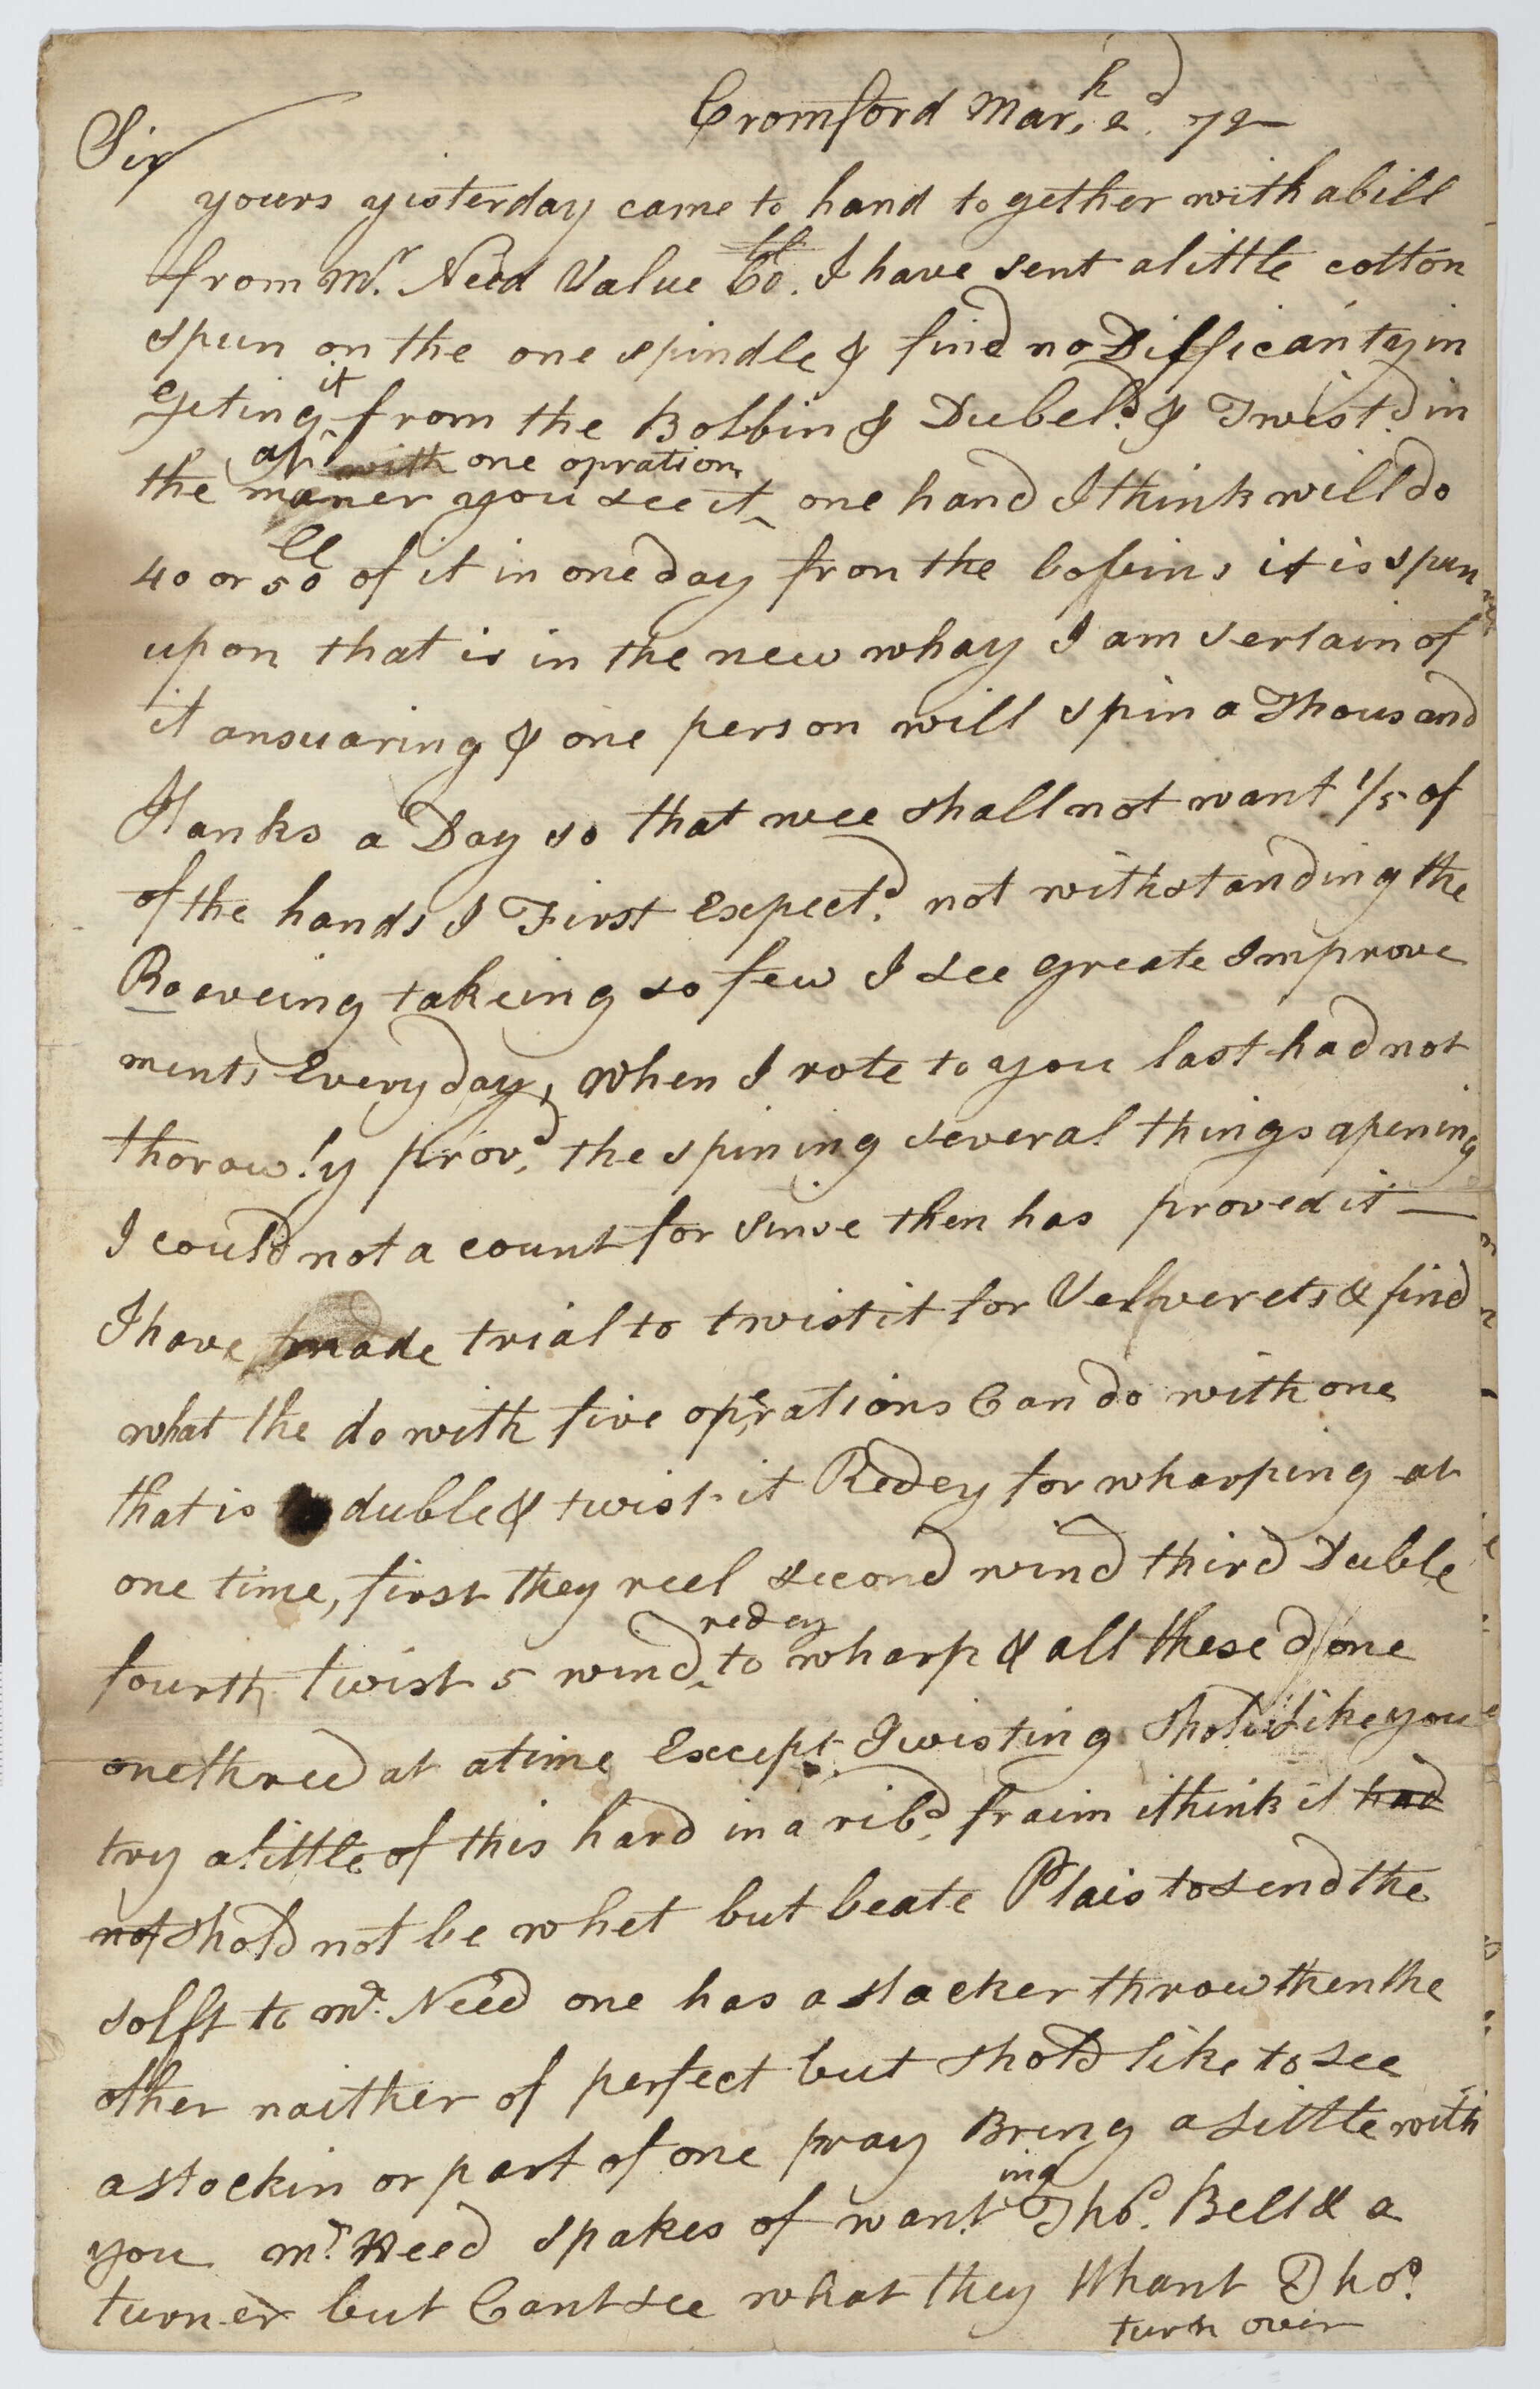 Cromford Mar.h 2d. 72
Sir
yours yisterday came to hand together with a bill
from Mr. Need Value 60. I have sent a little cotton
spun on the one spindle & find no Difficanty in
geting it from the Bobbin & Dubel.d & Twist.d in
the maner you see it at with one opration one hand I think will do
40 or 50 ll of it in one day from the bobins it is spun
upon that is in the new whay I am sertain of
it ansuaring & one person will spin a Thousand
Hanks a Day so that wee shall not want 1/5 of
of the hands I First Expect.d not withstanding the
Roaveing takeing so few I see greate Improve
ments Every day, when I rote to you last had not
thorow.ly prov.d the spining several things apening
I could not a count for sinse then has proved it —
I have made trial to twist it for Velverets & find
what the do with five operations Can do with one
that is duble & twist it Redey for wharping at
one time, first they reel second wind third Duble
fourth twist 5 wind redey to wharp & all these done
one thred at a time Except Twisting Shold Like you
try a little of this hard in a rib.d fraim i think it had
not shold not be whet but beate Plais to send the
solft to Mr. Need one has a slacker throw then the
other naither of perfect but shold like to see
a stockin or part of one pray Bring a Little with
you Mr. Need spakes of wanting Tho.s Bell & a
turner but Cant see what they Whant Tho.s
turn over